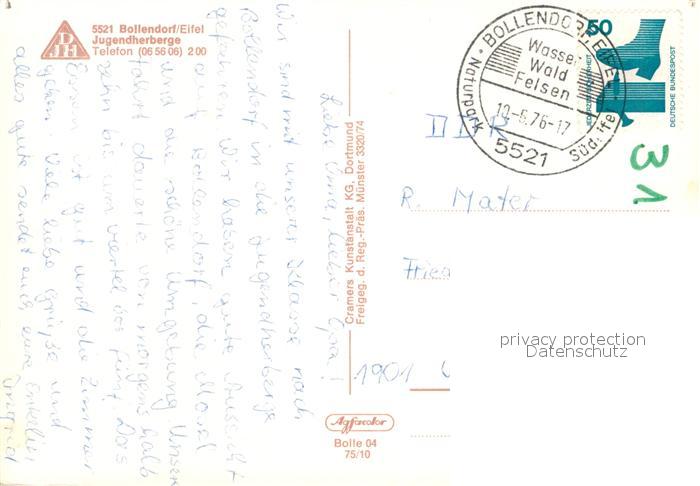 5521 Bollendorf/Eifel
Jugendherberge
Telefon (06 56 06) 2 00
DJH
Liebe Oma, lieber Opa!
Wir sind mit unserer Klasse nach
Bollendorf in die Jugendherberge
gefahren. Wir haben gute Aussicht
auf Bollendorf, die Mosel
und die schöne Umgebung. Unsere
Fahrt dauerte von morgens halb
zehn bis um viertel vor fünf. Das
Essen ist gut und die Zimmer
gehen. Viele liebe Grüße und
alles gute sendet euch, eure Enkelin
Cramers Kunstanstalt KG, Dortmund
Freigeg. d. Reg.-Präs. Münster 3320/74
Agfacolor
Bolle 04
75/10
BOLLENDORF EIFEL
Wasser
Wald
Felsen
Naturpark Südeifel
5521
50
DEUTSCHE BUNDESPOST
DDR
31
R. Mater
Fried
1901
privacy protection
Datenschutz